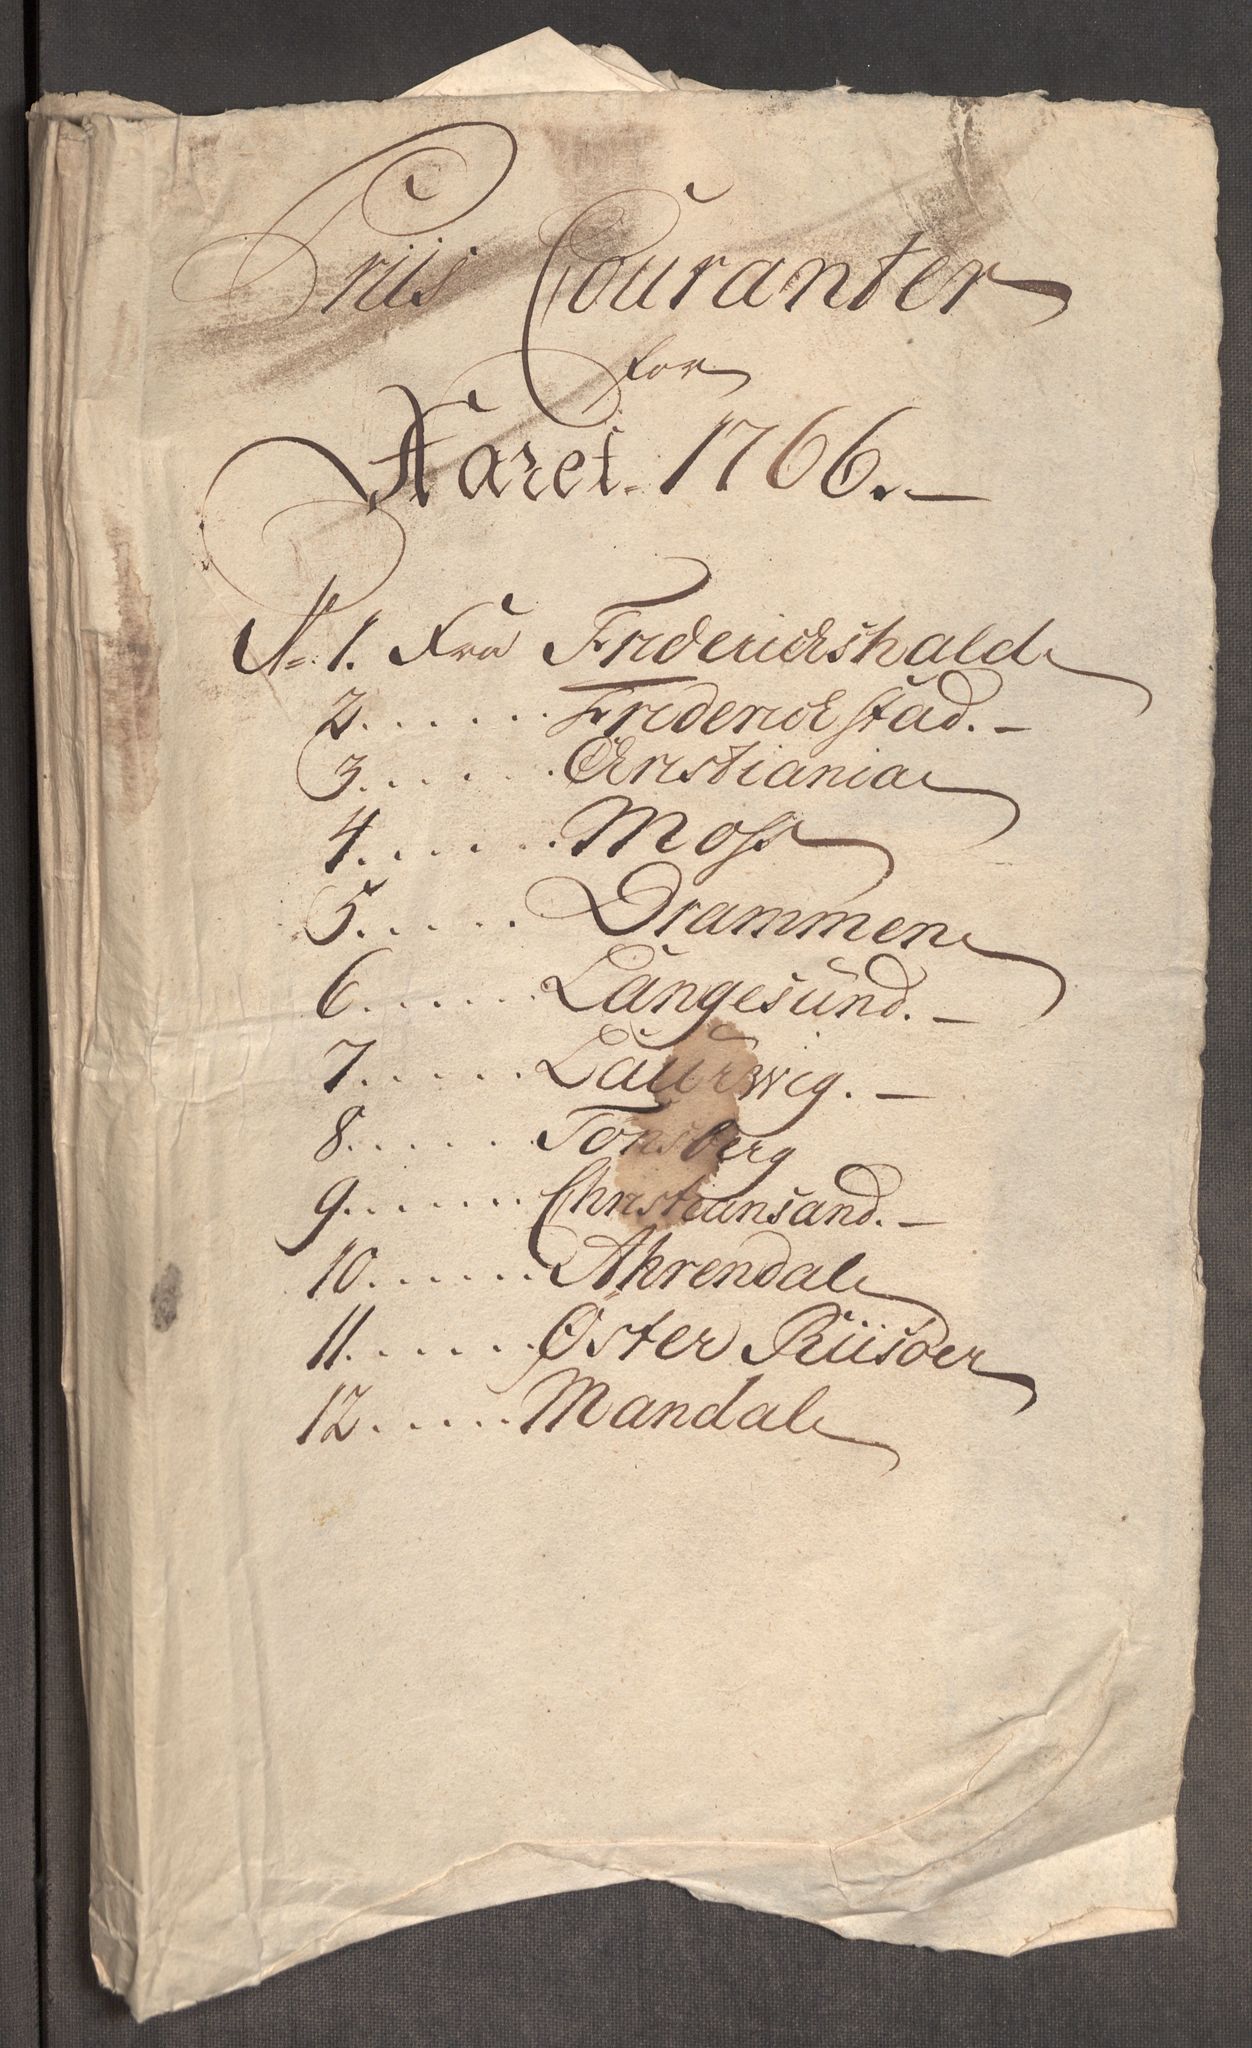 Priis Couranter
for
Aaret. 1766. —
No 1. Fra Friderichshald
2. . . . . . . Friderichstad. —
3. . . . . . Christiania
4. . . . . . Moss
5. . . . . . Drammen
6. . . . . . . Langesund. —
7. . . . . . Laurwig. —
8. . . . . . . Tonsberg
9. . . . . . . Christiansand. —
10. . . . . . . Ahrendal
11. . . . . . Øster Riisöer
12. . . . . . Mandal